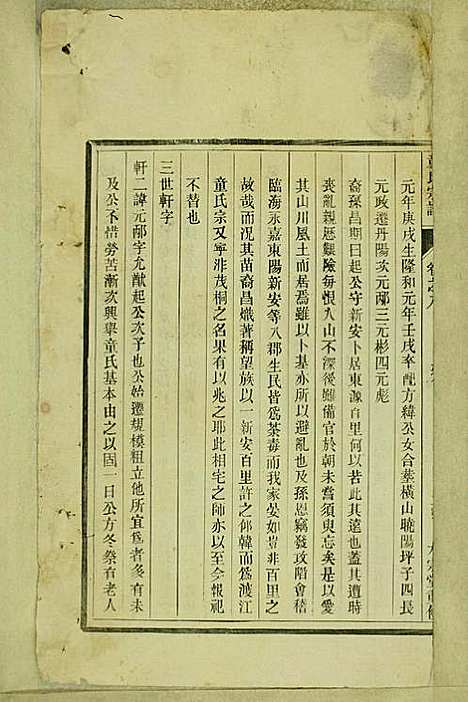 元年庚戌生隆和元年壬戌卒配方緯公女合塟橫山曉陽坪子四長
元政遷丹陽次元邴三元彬四元彪
裔孫昌期曰起公守新安卜居東源百里何以若此其遠也蓋其遭時
喪亂親歷艱險每恨入山不深後雖備官於朝未嘗須臾忘矣是以愛
其山川風土而居焉雖以卜基亦所以避亂也及孫恩竊發攻陷會稽
臨海永嘉東陽新安等八郡生民皆爲荼毒而我家晏如豈非百里之
故哉而况其苗裔昌熾著稱望族以一新安百里許之仰韓而爲渡江
童氏宗又寧非茂桐之名果有以兆之耶此相宅之師亦以至今報祀
不替也
三世軒字
軒二諱元邴字尤猷起公次子也公始遷規模粗立他所宜爲者多有未
及公不惜勞苦漸次興舉童氏基本由之以固一日公方冬祭有老人